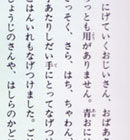 にげていくおじいさん、おばあ
っとも用がありません。青に
っそく、さら、はち、ちゃわん、
あたりしだい手にとってなげつ
とはんいれもなげつけました。ご
しょうじのさんや、はしらのかど